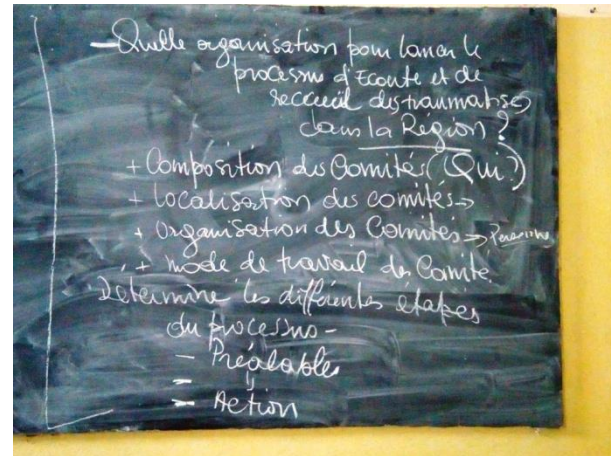 — Quelle organisation pour lancer le
processus d'Ecoute et de
reccueil des traumatisés
dans la Région ?
+ Composition des Comités (Qui ?)
+ localisation des comités →
+ Organisation des Comités →
+ mode de travail des Comité.
Détermine les différentes étapes
du processus -
- Préalable
- "
- Action